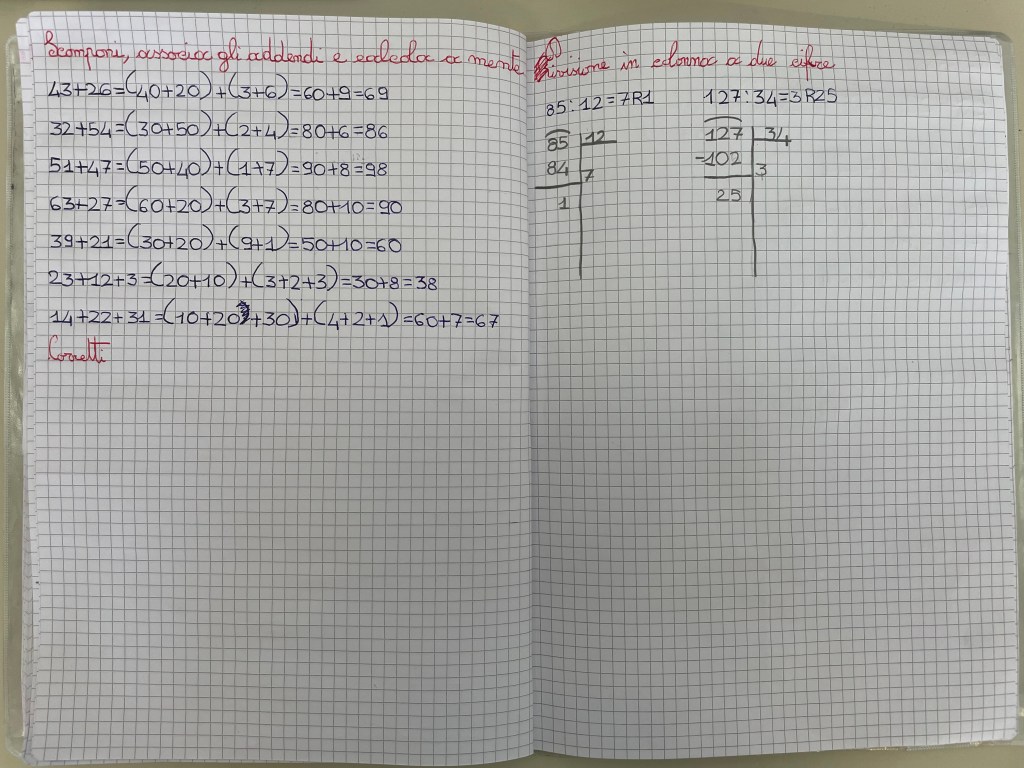 Scomponi, associa gli addendi e calcola a mente
43+26=(40+20)+(3+6)=60+9=69
32+54=(30+50)+(2+4)=80+6=86
51+47=(50+40)+(1+7)=90+8=98
63+27=(60+20)+(3+7)=80+10=90
39+21=(30+20)+(9+1)=50+10=60
23+12+3=(20+10)+(3+2+3)=30+8=38
14+22+31=(10+20+30)+(4+2+1)=60+7=67
Corretti
Divisione in colonna a due cifre
85:12=7R1
85 12
84 7
1
127:34=3R25
127 34
-102 3
25